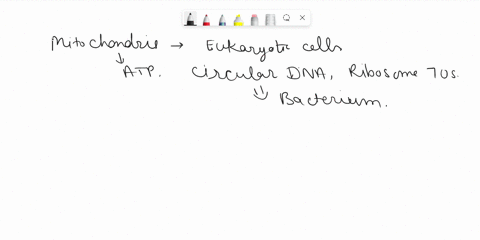 Mitochondrie → Eukaryotic cells
↓ ATP. Circular DNA, Ribosome 70s.
⇓ Bacterium.